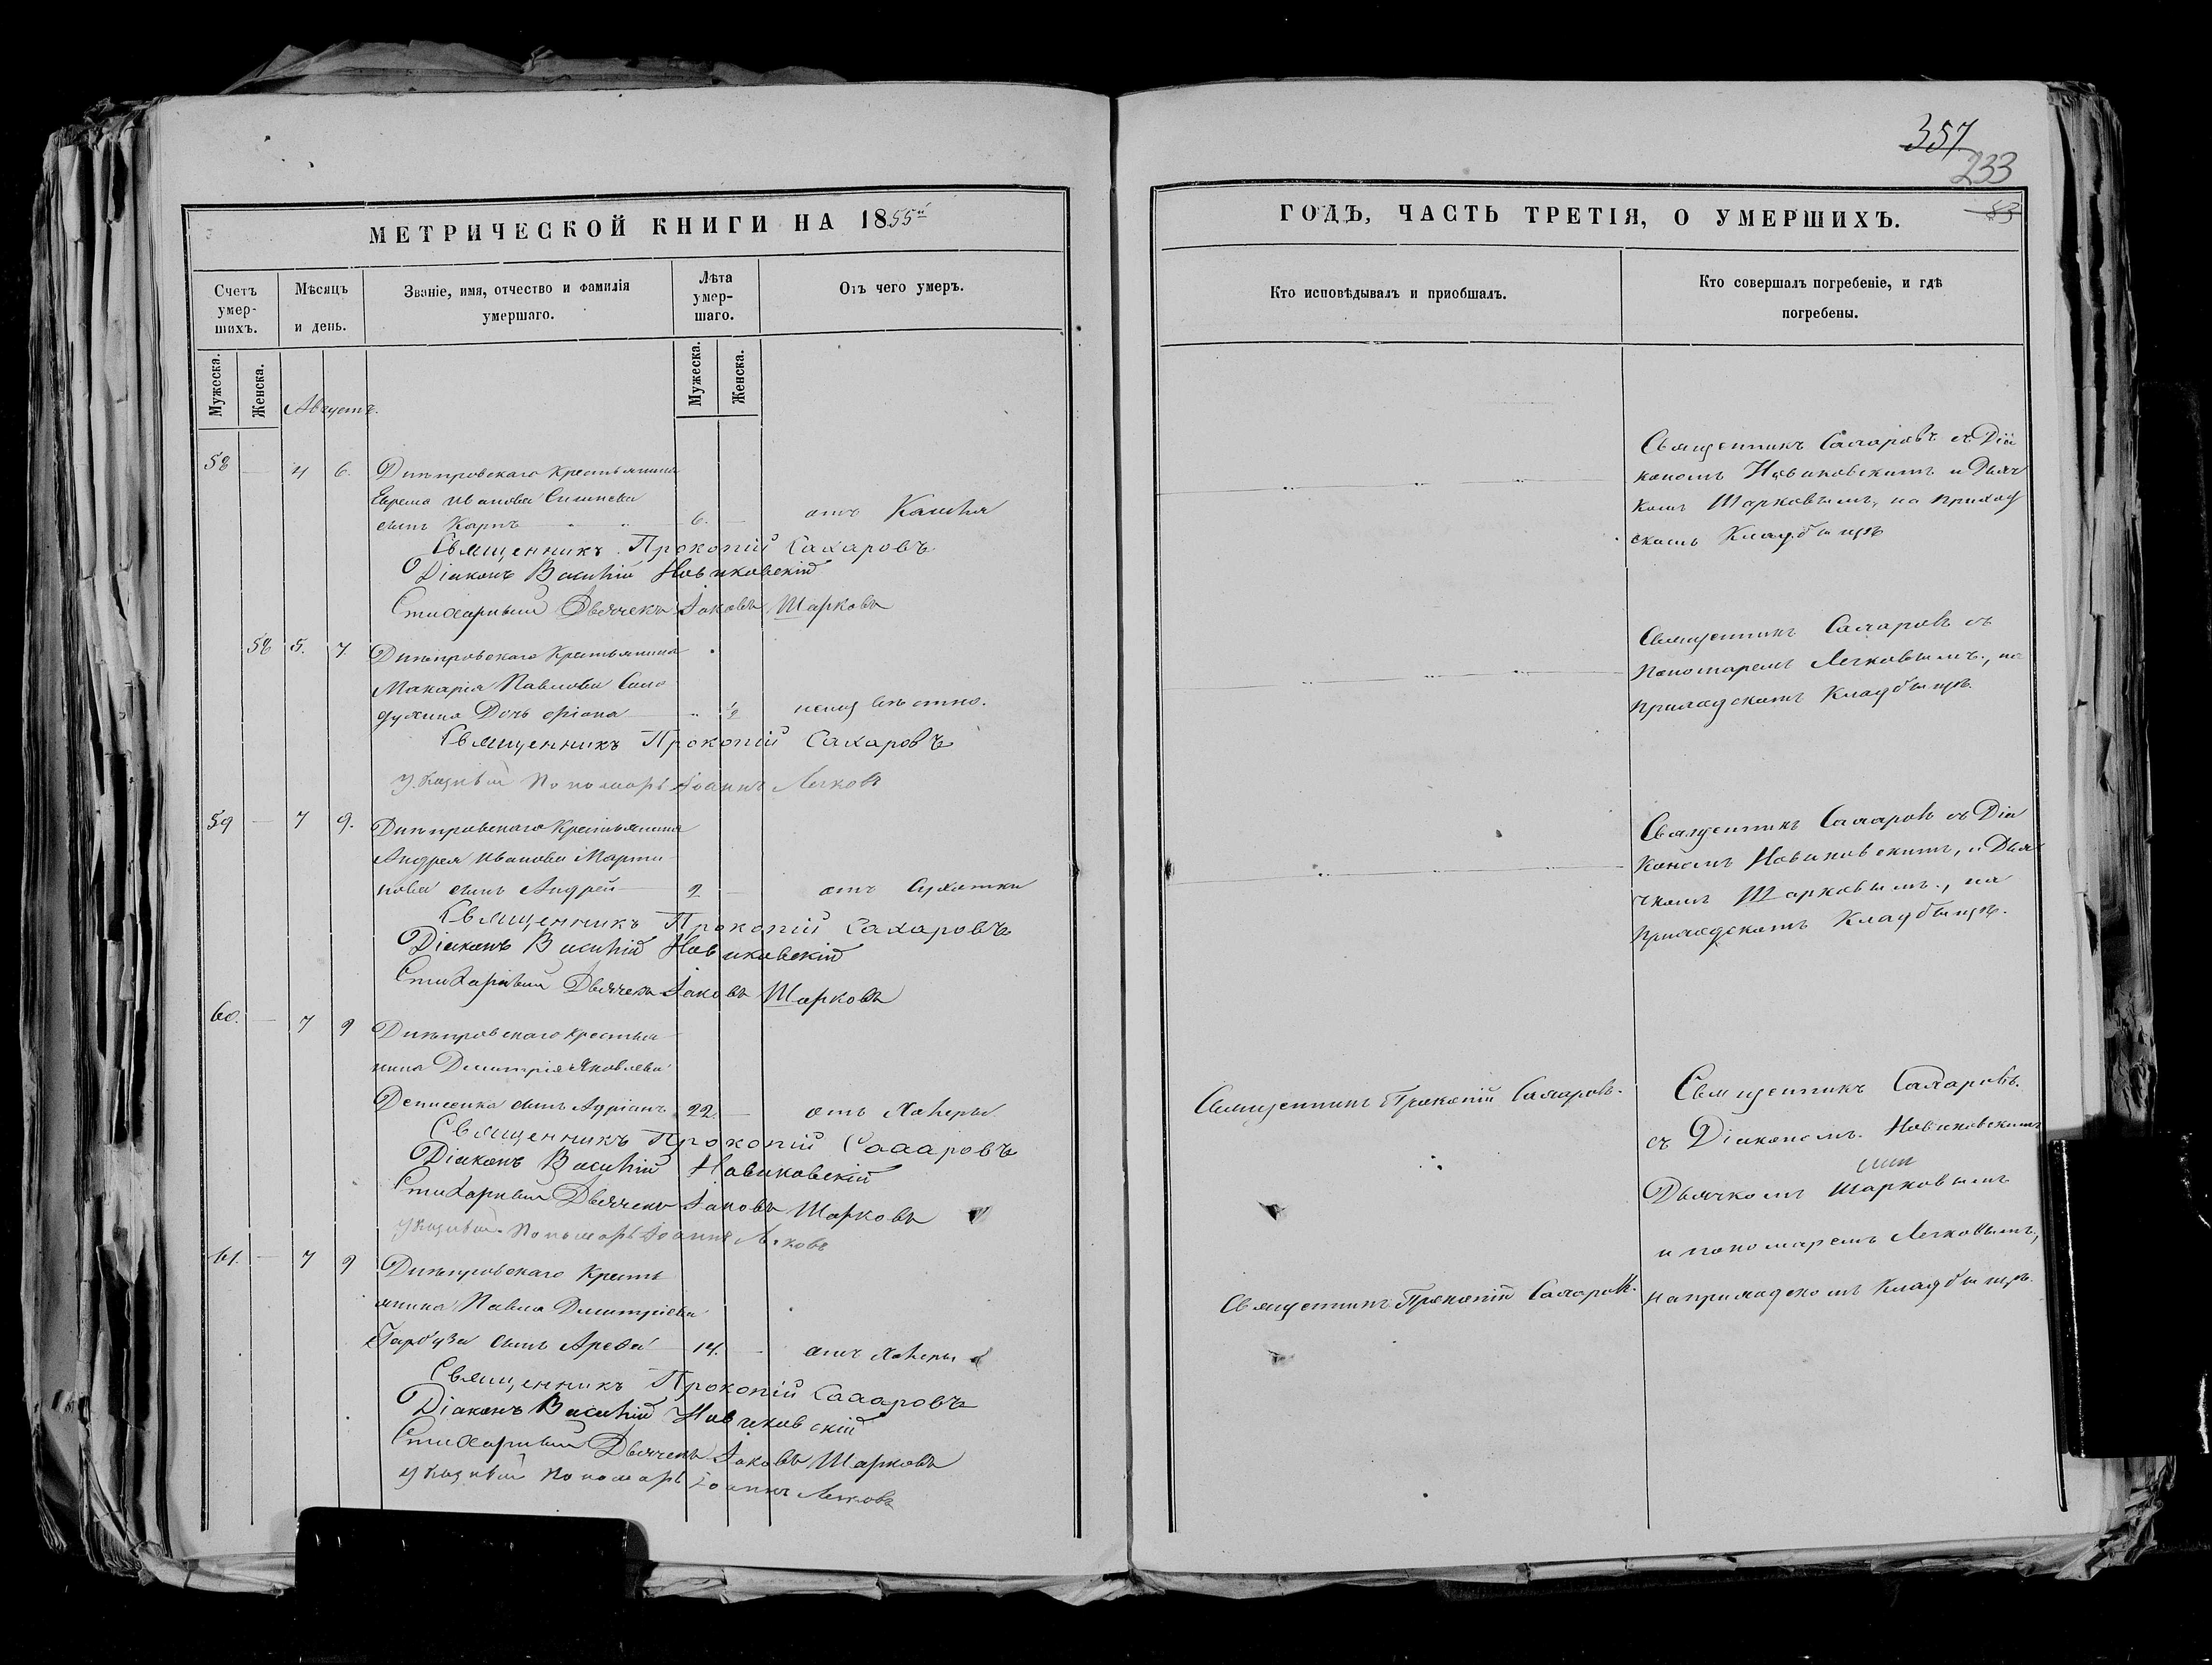 357
233
83
МЕТРИЧЕСКОЙ КНИГИ НА 1855й
Счетъ умер- шихъ.
Мѣсяцъ и день.
Званіе, имя, отчество и фамилія умершаго.
Лѣта умер- шаго.
Отъ чего умеръ.
Мужеска.
Женска.
Мужеска.
Женска.
Августъ.
58 4 6. Днѣпровскаго Крестьянина
Ефрема Иванова
сынъ Карпъ 6. отъ Кашля
Священникъ Прокопій Сахаровъ
Діаконъ Василій Новиковскій
Стихарный Дьячекъ Іаковъ Шарковъ
58 5. 7. Днѣпровскаго Крестьянина
Макарія Павлова
Дочь 1/2 неизвѣстно.
Священникъ Прокопій Сахаровъ
Указный Пономарь Іоаннъ Легковъ
59 7 9. Днѣпровскаго Крестьянина
Андрея Иванова Марти-
нова сынъ Андрей 2 отъ Сухотки
Священникъ Прокопій Сахаровъ
Діаконъ Василій Новиковскій
Стихарный Дьячекъ Іаковъ Шарковъ
60. 7 9 Днѣпровскаго Крестья-
нина Димитрія Яковлева
Денисенка сынъ Адріанъ 22 отъ Холеры
Священникъ Прокопій Сахаровъ
Діаконъ Василій Новиковскій
Стихарный Дьячекъ Іаковъ Шарковъ
Указный Пономарь Іоаннъ Легковъ
61. 7 9 Днѣпровскаго Кресть
янина Павла Димитріева
Гарбуза сынъ 14. отъ Холеры
Священникъ Прокопій Сахаровъ
Діаконъ Василій Новиковскій
Стихарный Дьячекъ Іаковъ Шарковъ
Указный Пономарь Іоаннъ Легковъ
ГОДЪ, ЧАСТЬ ТРЕТІЯ, О УМЕРШИХЪ.
Кто исповѣдывалъ и приобщалъ.
Кто совершалъ погребеніе, и гдѣ погребены.
Священникъ Сахаровъ съ Діа
кономъ Новиковскимъ и Дьяч
комъ Шарковымъ, на приход
скомъ Кладбищѣ
Священникъ Сахаровъ съ
Пономаремъ Легковымъ, на
приходскомъ Кладбищѣ.
Священникъ Сахаровъ съ Діа
кономъ Новиковскимъ, и Дья
чкомъ Шарковымъ, на
приходскомъ Кладбищѣ.
Священникъ Прокопій Сахаровъ.
Священникъ Сахаровъ.
съ Діакономъ Новиковскимъ
Дьячкомъ Шарковымъ
и пономаремъ Легковымъ,
Священникъ Прокопій Сахаровъ.
на приходскомъ Кладбищѣ.